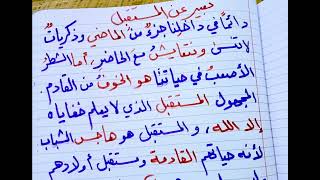 تعبير عن المستقبل
دائماً في داخلنا جزءٌ من الماضي وذكرياتٌ
لا تنسى ونتعايش مع الحاضر، أما الشطر
الأصعبُ في حياتنا هو الخوفُ من القادم
المجهول المستقبل الذي لا يعلم خفاياه
إلا الله، والمستقبل هو هاجس الشباب
لأنه حياتهم القادمة ومستقبل أولادهم